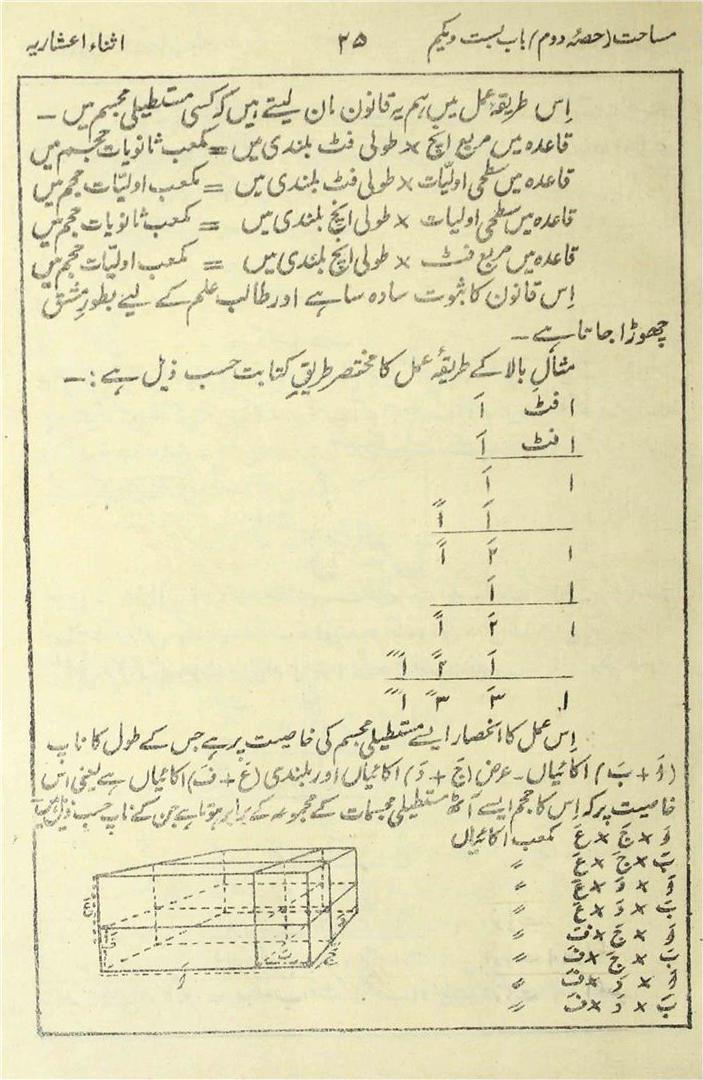 مساحت (حصۂ دوم) باب بست و یکم ۲۵ اثناء اعشاریہ
اِس طریقۂ عمل میں ہم یہ قانون مان لیتے ہیں کہ کسی مستطیلی مجسم میں ۔
قاعدہ میں مربع انچ × طولی فٹ بلندی میں = مکعب ثانویات حجم میں
قاعدہ میں سطحی اولیّات × طولی فٹ بلندی میں = مکعب اولیّات حجم میں
قاعدہ میں سطحی اولیات × طولی انچ بلندی میں = مکعب ثانویات حجم میں
قاعدہ میں مربع فٹ × طولی انچ بلندی میں = مکعب اولیّات حجم میں
اِس قانون کا ثبوت سادہ سا ہے اور طالب علم کے لیے بطورِ مشق
چھوڑا جاتا ہے ۔
مثالِ بالا کے طریقۂ عمل کا مختصر طریقِ کتابت حسب ذیل ہے :۔
۱ فٹ ۱َ
۱ فٹ ۱َ
۱ ۱َ
۱َ ۱ً
۱ ۲َ ۱ً
۱ ۱َ
۱ ۲َ ۱ً
۱َ ۲ً ۱ًَ
۱ ۳َ ۳ً ۱ًَ
اِس عمل کا انحصار ایسے مستطیلی مجسم کی خاصیت پر ہے جس کے طول کا ناپ
(اَ + بَ) اکائیاں ۔ عرض (جَ + دَ) اکائیاں اور بلندی (عَ + فَ) اکائیاں ہے یعنی اس
خاصیت پر کہ اِس کا حجم ایسے آٹھ مستطیلی مجسمات کے مجموعہ کے برابر ہوتا ہے جن کے ناپ حسب ذیل
اَ × جَ × عَ مکعب اکائیاں
بَ × جَ × عَ 〃
اَ × دَ × عَ 〃
بَ × دَ × عَ 〃
اَ × جَ × فَ 〃
بَ × جَ × فَ 〃
اَ × دَ × فَ 〃
بَ × دَ × فَ 〃